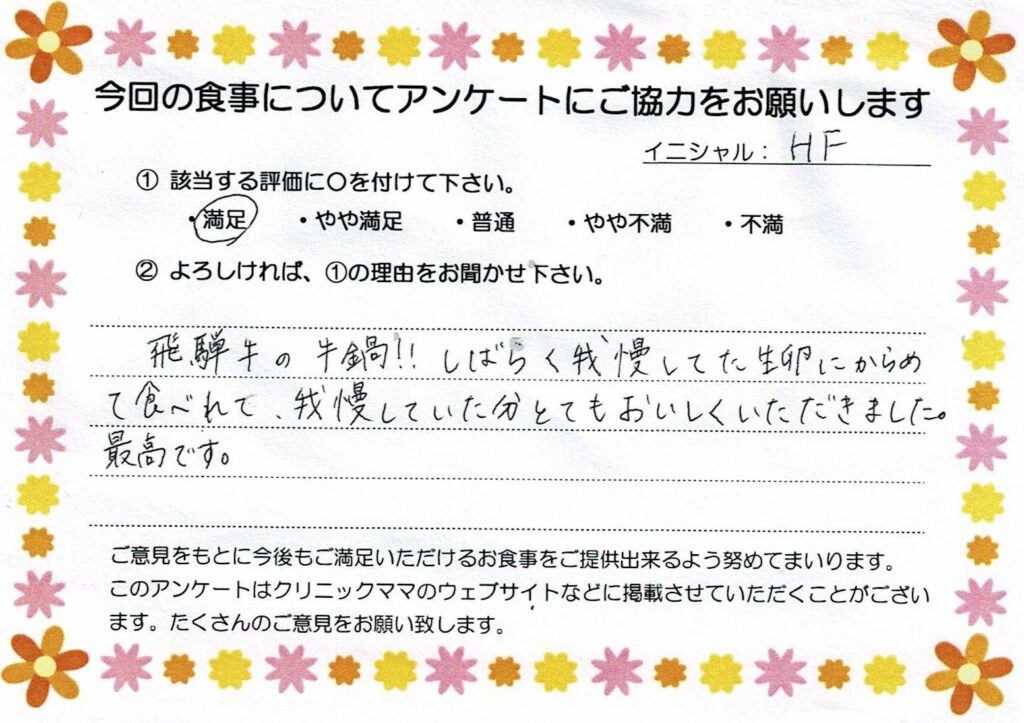 今回の食事についてアンケートにご協力をお願いします
イニシャル：HF
① 該当する評価に〇を付けて下さい。
・満足 ・やや満足 ・普通 ・やや不満 ・不満
② よろしければ、①の理由をお聞かせ下さい。
飛騨牛の牛鍋!! しばらく我慢してた生卵にからめ
て食べれて、我慢していた分とてもおいしくいただきました。
最高です。
ご意見をもとに今後もご満足いただけるお食事をご提供出来るよう努めてまいります。
このアンケートはクリニックママのウェブサイトなどに掲載させていただくことがござい
ます。たくさんのご意見をお願い致します。